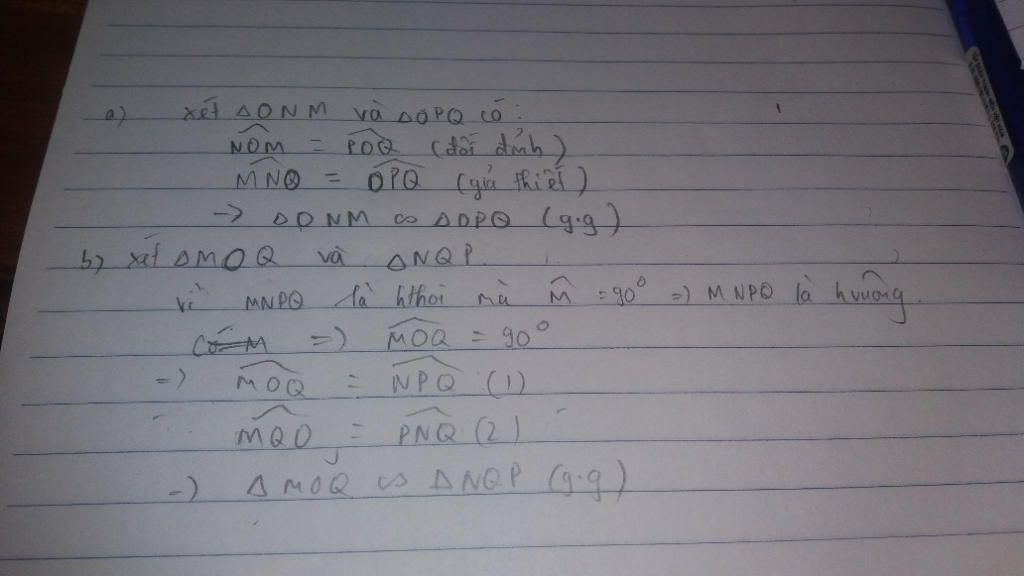 a) xét ΔONM và ΔOPQ có:
NOM = POQ (đối đỉnh)
MNQ = OPQ (giả thiết)
-> ΔONM ∽ ΔOPQ (g.g)
b) xét ΔMOQ và ΔNQP.
vì MNPQ là hthoi mà M = 90° => MNPQ là hvuông.
=> MOQ = 90°
=> MOQ = NPQ (1)
MQO = PNQ (2)
-> ΔMOQ ∽ ΔNQP (g.g)